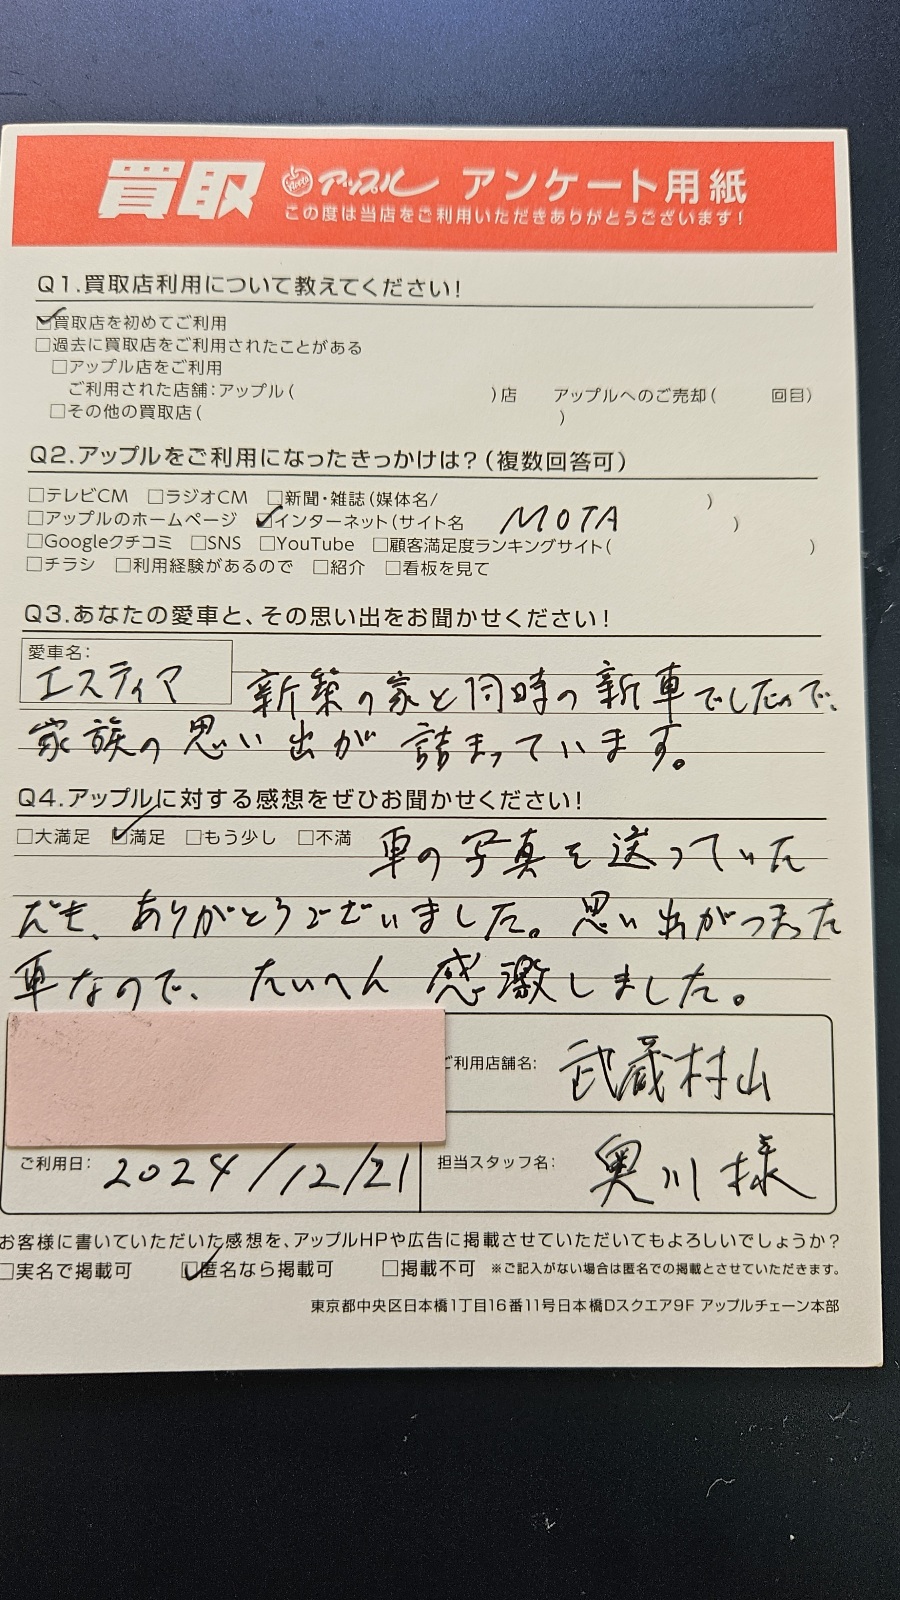 買取 アップル アンケート用紙
この度は当店をご利用いただきありがとうございます!
Q1.買取店利用について教えてください!
買取店を初めてご利用
□過去に買取店をご利用されたことがある
□アップル店をご利用
ご利用された店舗:アップル( )店 アップルへのご売却( 回目)
□その他の買取店( )
Q2.アップルをご利用になったきっかけは?(複数回答可)
□テレビCM □ラジオCM □新聞・雑誌(媒体名/ )
□アップルのホームページ ☑インターネット(サイト名 MOTA )
□Googleクチコミ □SNS □YouTube □顧客満足度ランキングサイト( )
□チラシ □利用経験があるので □紹介 □看板を見て
Q3.あなたの愛車と、その思い出をお聞かせください!
愛車名:
エスティマ 新築の家と同時の新車でしたので、
家族の思い出が詰まっています。
Q4.アップルに対する感想をぜひお聞かせください!
□大満足 ☑満足 □もう少し □不満 車の写真を送っていた
だき、ありがとうございました。思い出がつまった
車なので、たいへん感激しました。
ご利用店舗名: 武蔵村山
ご利用日: 2024/12/21 担当スタッフ名: 奥川様
お客様に書いていただいた感想を、アップルHPや広告に掲載させていただいてもよろしいでしょうか?
□実名で掲載可 ☑匿名なら掲載可 □掲載不可 ※ご記入がない場合は匿名での掲載とさせていただきます。
東京都中央区日本橋1丁目16番11号日本橋Dスクエア9F アップルチェーン本部